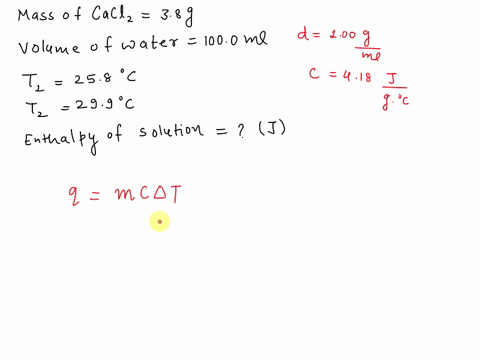 Mass of CaCl₂ = 3.8 g
Volume of water = 100.0 ml
T₁ = 25.8 °C
T₂ = 29.9 °C
Enthalpy of solution = ? (J)
d = 1.00 g/ml
C = 4.18 J/g.°C
q = mCΔT